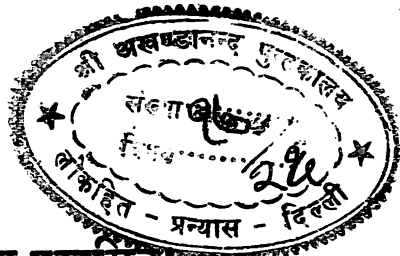 श्री अखण्डानन्द पुस्तकालय
संख्या
विषय
२५
लोकहित - प्रन्यास - दिल्ली